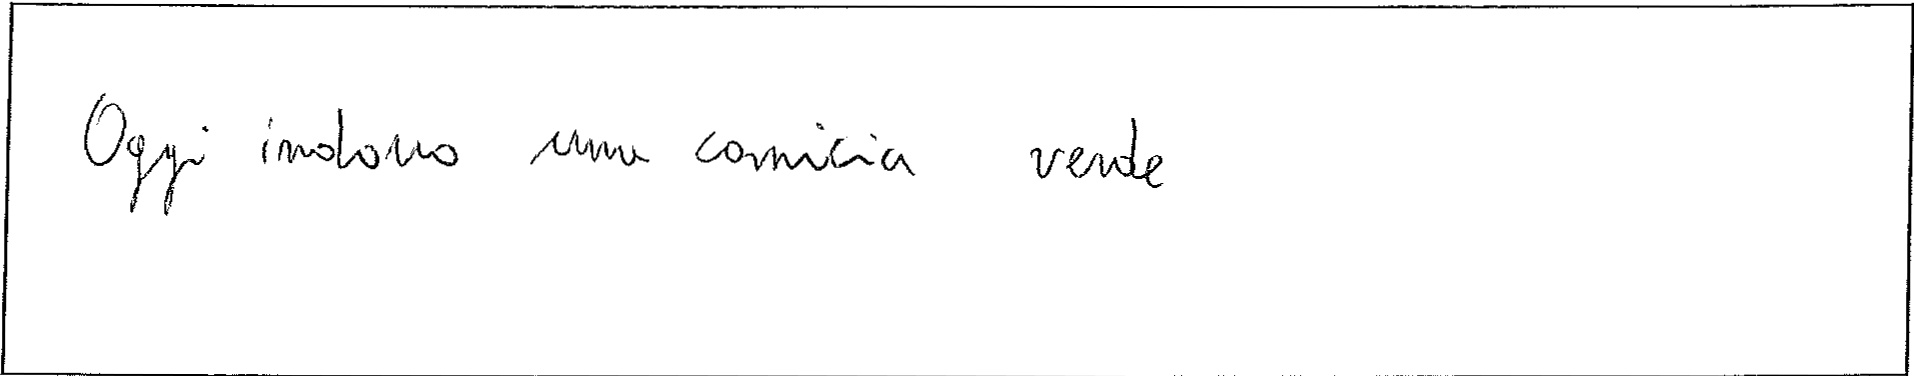 Oggi indosso una camicia verde